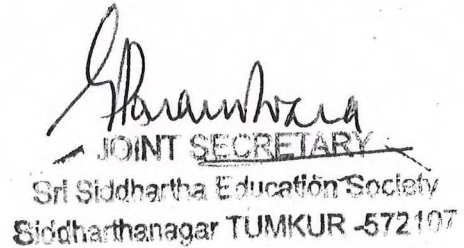 G Parameshwara
JOINT SECRETARY
Sri Siddhartha Education Society
Siddharthanagar TUMKUR -572107